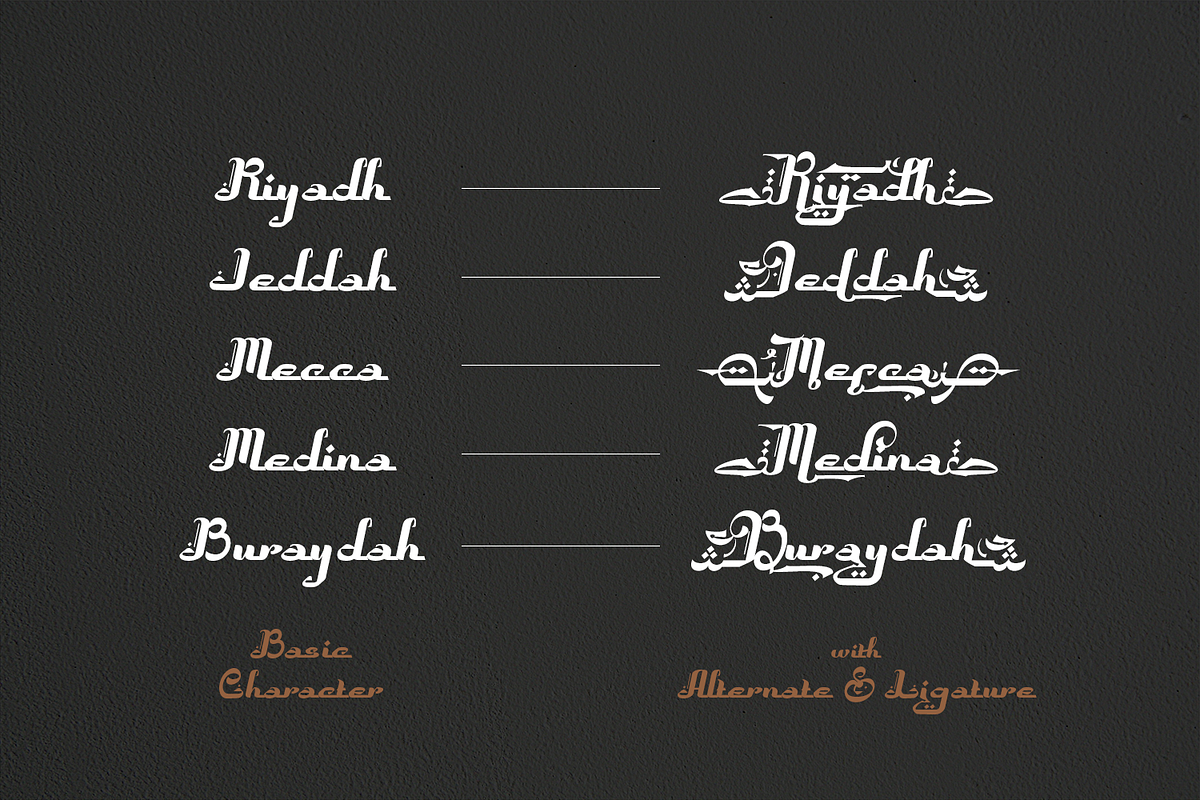 Riyadh Riyadh
Jeddah Jeddah
Mecca Mecca
Medina Medina
Buraydah Buraydah
Basic
Character
with
Alternate & Ligature